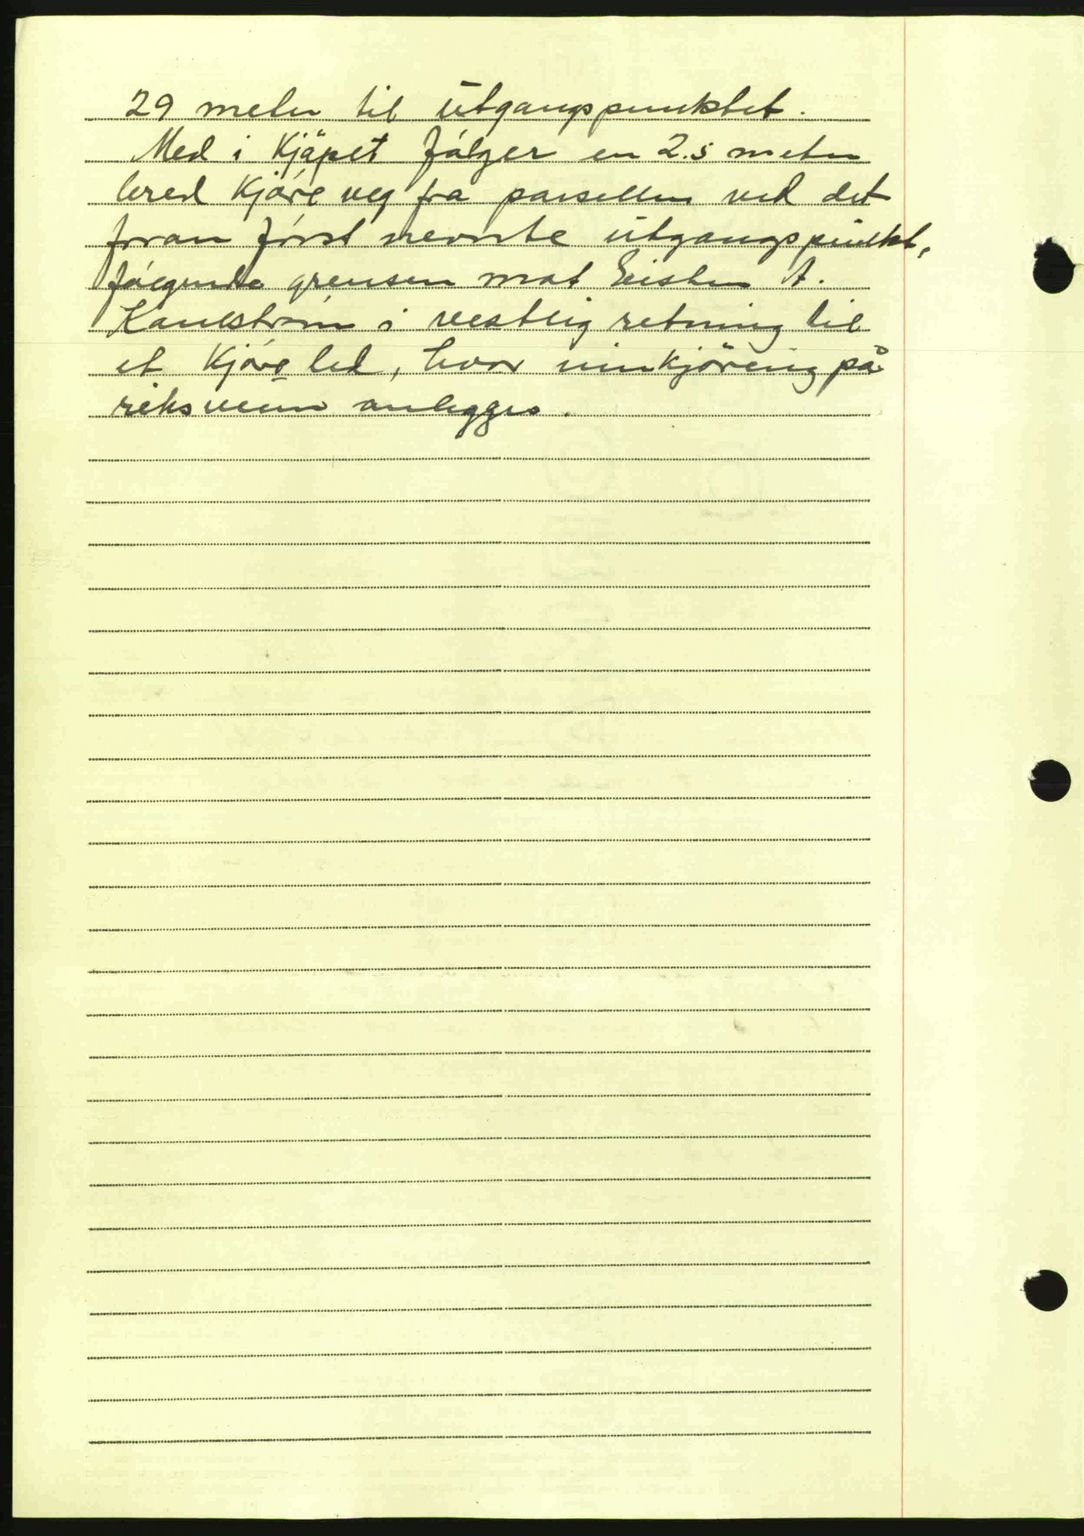 29 meter til utgangspunktet.
Med i Kjøpet følger en 2.5 meter
bred Kjøre veg fra parsellen ved det
foran først nevnte utgangspunkt,
følgende grensen mot A.
Karlstrøm i vestlig retning til
et Kjøre led, hvor innkjøring på
riksveien anlegges.